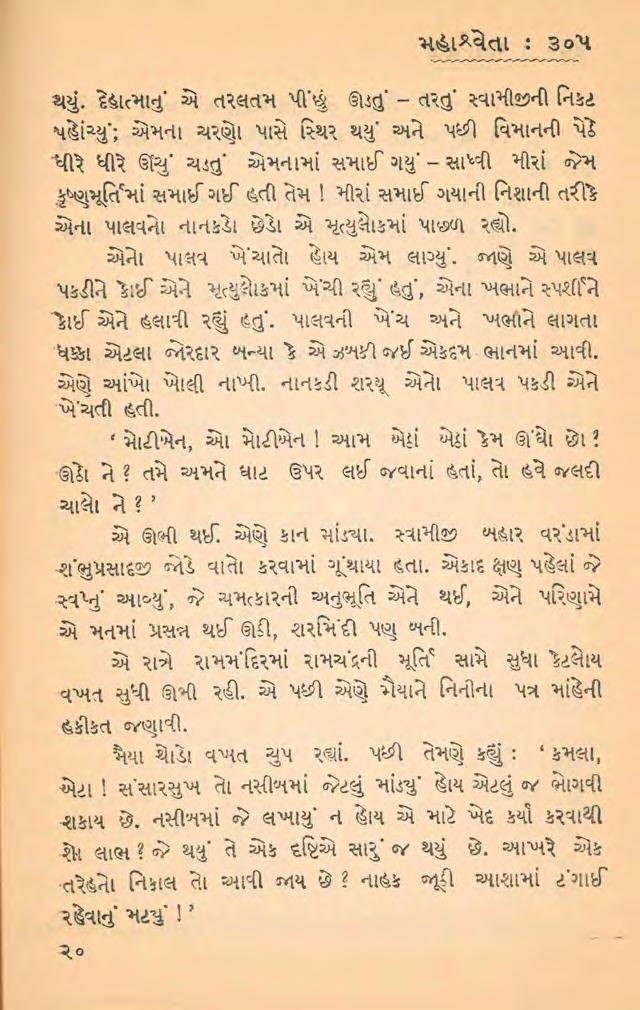 મહાશ્વેતા : ૩૦૫
થયું. દેહાત્માનું એ તરલતમ પીંછું ઊડતું – તરતું સ્વામીજીની નિકટ
પહોંચ્યું; એમના ચરણો પાસે સ્થિર થયું અને પછી વિમાનની પેઠે
ધીરે ધીરે ઊંચું ચડતું એમનામાં સમાઈ ગયું – સાધ્વી મીરાં જેમ
કૃષ્ણમૂર્તિમાં સમાઈ ગઈ હતી તેમ ! મીરાં સમાઈ ગયાની નિશાની તરીકે
એના પાલવનો નાનકડો છેડો એ મૃત્યુલોકમાં પાછળ રહ્યો.
એનો પાલવ ખેંચાતો હોય એમ લાગ્યું. જાણે એ પાલવ
પકડીને કોઈ એને મૃત્યુલોકમાં ખેંચી રહ્યું હતું, એના ખભાને સ્પર્શીને
કોઈ એને હલાવી રહ્યું હતું. પાલવની ખેંચ અને ખભાને લાગતા
ધક્કા એટલા જોરદાર બન્યા કે એ ઝબકી જઈ એકદમ ભાનમાં આવી.
એણે આંખો ખોલી નાખી. નાનકડી શરયૂ એનો પાલવ પકડી એને
ખેંચતી હતી.
‘ મોટીબેન, ઓ મોટીબેન ! આમ બેઠાં બેઠાં કેમ ઊંઘો છો ?
ઊઠો ને ? તમે અમને ઘાટ ઉપર લઈ જવાનાં હતાં, તો હવે જલદી
ચાલો ને ? ’
એ ઊભી થઈ. એણે કાન માંડ્યા. સ્વામીજી બહાર વરંડામાં
શંભુપ્રસાદજી જોડે વાતો કરવામાં ગૂંથાયા હતા. એકાદ ક્ષણ પહેલાં જે
સ્વપ્નું આવ્યું, જે ચમત્કારની અનુભૂતિ એને થઈ, એને પરિણામે
એ મનમાં પ્રસન્ન થઈ ઊઠી, શરમિંદી પણ બની.
એ રાત્રે રામમંદિરમાં રામચંદ્રની મૂર્તિ સામે સુધા કેટલોય
વખત સુધી ઊભી રહી. એ પછી એણે મૈયાને નિતીના પત્ર માંહેની
હકીકત જણાવી.
મૈયા થોડો વખત ચુપ રહ્યાં. પછી તેમણે કહ્યું : ‘ કમલા,
બેટા ! સંસારસુખ તો નસીબમાં જેટલું માંડ્યું હોય એટલું જ ભોગવી
શકાય છે. નસીબમાં જે લખાયું ન હોય એ માટે ખેદ કર્યા કરવાથી
શો લાભ ? જે થયું તે એક દૃષ્ટિએ સારું જ થયું છે. આખરે એક
તરેહનો નિકાલ તો આવી જાય છે ? નાહક જૂઠી આશામાં ટંગાઈ
રહેવાનું મટયું ! ’
૨૦